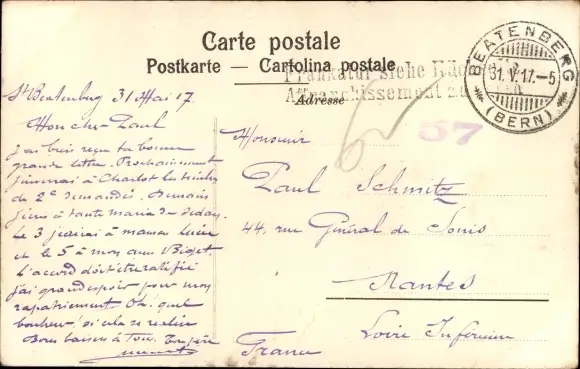 Carte postale
Postkarte — Cartolina postale
Adresse
Frankatur siehe
Affranchissement
BEATENBERG
31.V.17.–5
(BERN)
57
St Beatenberg 31 Mai 17
Mon cher Paul
j'ai bien reçu ta bonne
grande lettre. Prochainement
j'enverrai à Charlot les timbres
de 2c demandés. Demain
j'écris à tante Maria de Sedan.
Le 3 j'écrirai à maman
et le 5 à mon ami
L'accord doit être ratifié
j'ai grand espoir pour mon
rapatriement Oh. quel
bonheur! si cela se réalise
Bons baisers à tous. Ton père
Monsieur
Paul Schmitz
44, rue Général de Sonis
Nantes
Loire Inférieure
France